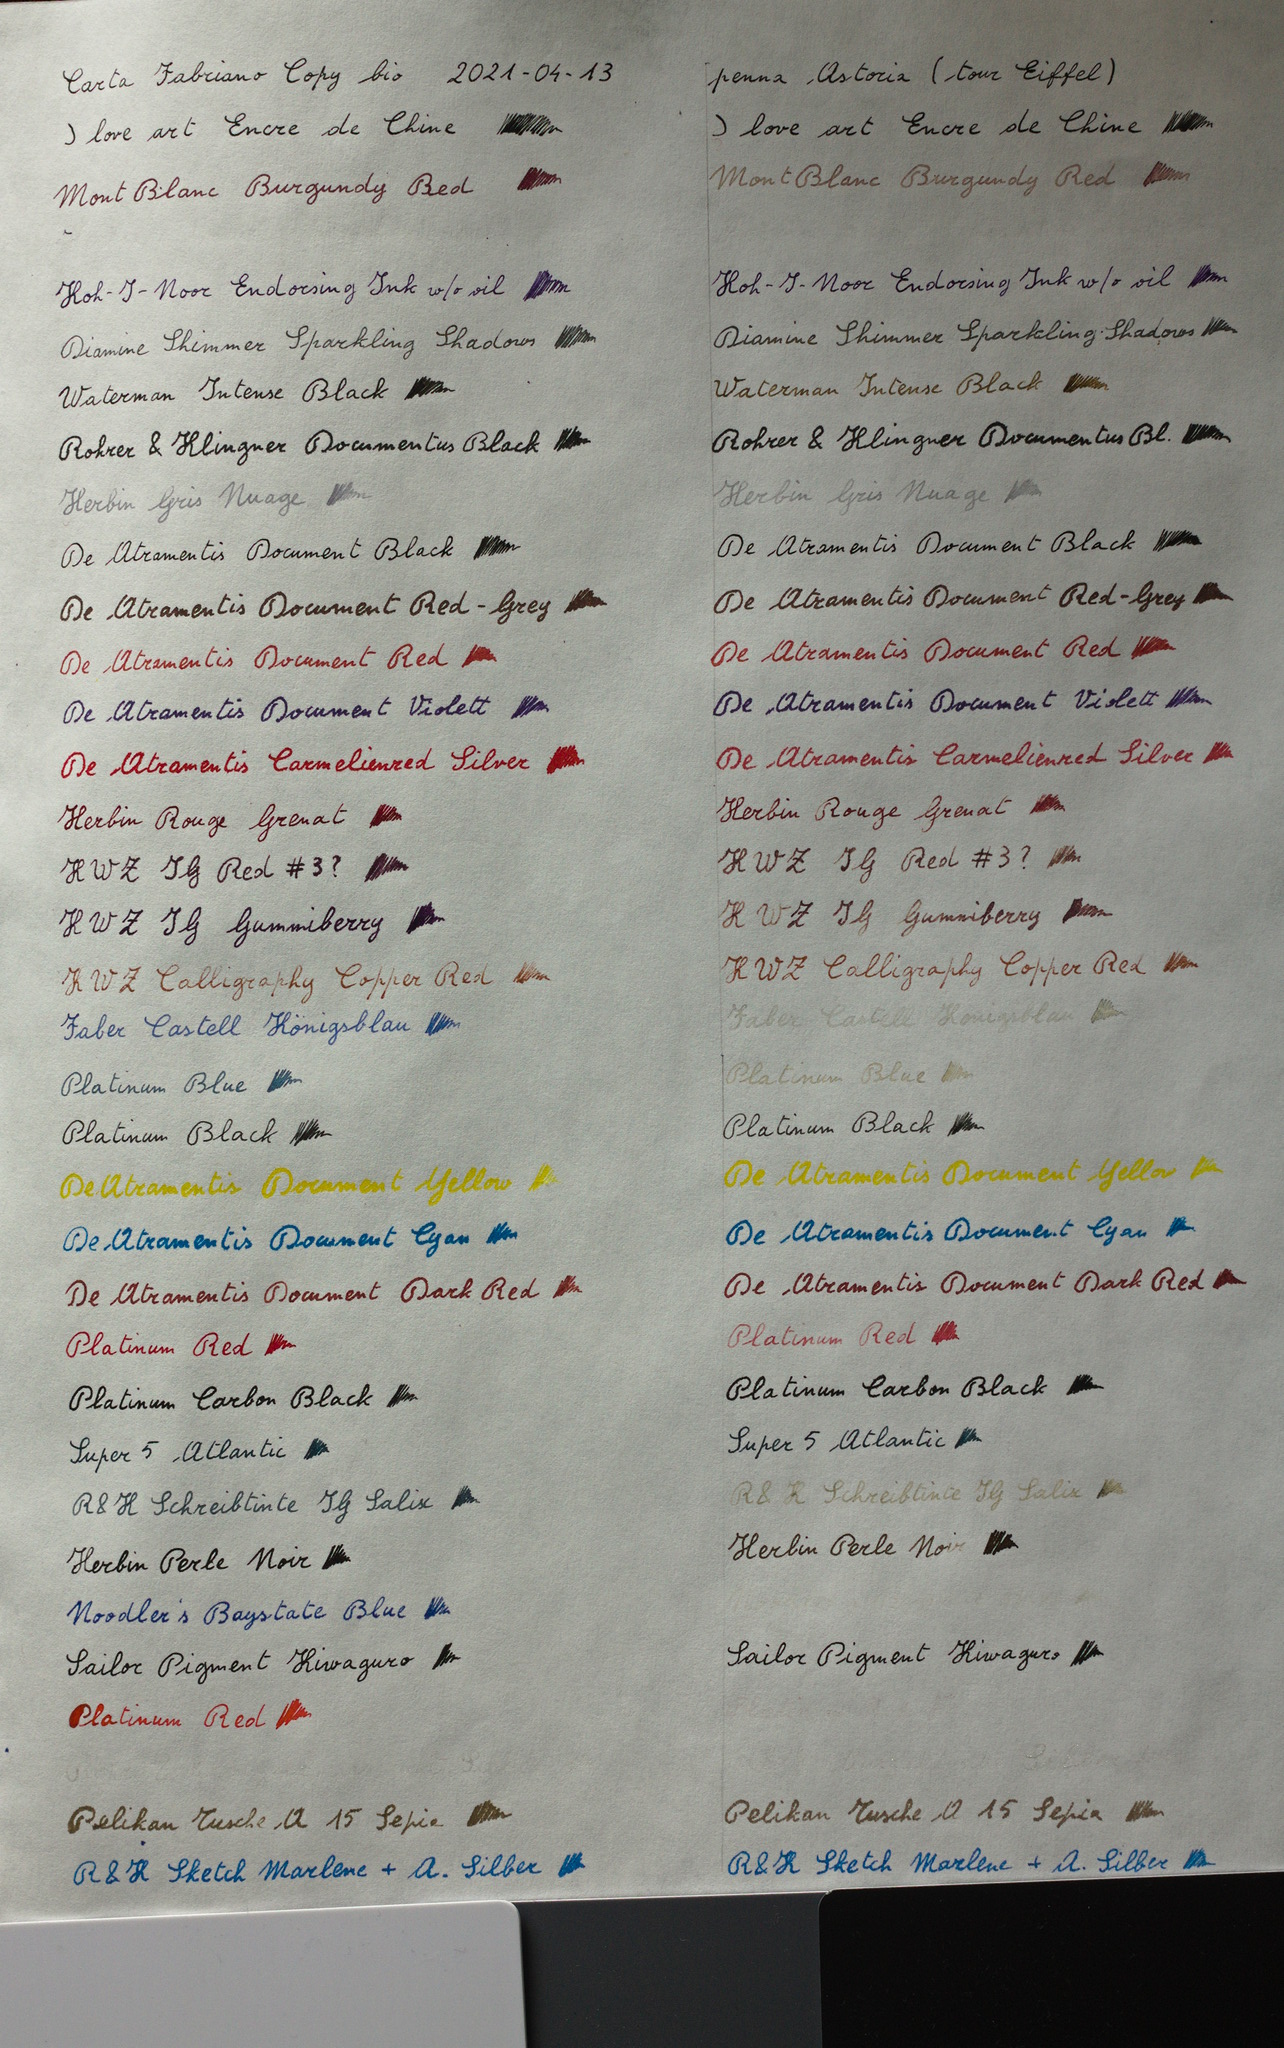 Carta Fabriano Copy bio 2021-04-13
I love art Encre de Chine
MontBlanc Burgundy Red
Koh-I-Noor Endorsing Ink w/o oil
Diamine Shimmer Sparkling Shadows
Waterman Intense Black
Rohrer & Klingner Documentus Black
Herbin Gris Nuage
De Atramentis Document Black
De Atramentis Document Red-Grey
De Atramentis Document Red
De Atramentis Document Violett
De Atramentis Carmelienred Silver
Herbin Rouge Grenat
KWZ IG Red #3?
KWZ IG Gummiberry
KWZ Calligraphy Copper Red
Faber Castell Königsblau
Platinum Blue
Platinum Black
De Atramentis Document Yellow
De Atramentis Document Cyan
De Atramentis Document Dark Red
Platinum Red
Platinum Carbon Black
Super 5 Atlantic
R&K Schreibtinte IG Salix
Herbin Perle Noir
Noodler's Baystate Blue
Sailor Pigment Kiwaguro
Platinum Red
Pelikan Tusche A 15 Sepia
R&K Sketch Marlene + A. Silber
penna Astoria (tour Eiffel)
I love art Encre de Chine
MontBlanc Burgundy Red
Koh-I-Noor Endorsing Ink w/o oil
Diamine Shimmer Sparkling Shadows
Waterman Intense Black
Rohrer & Klingner Documentus Bl.
Herbin Gris Nuage
De Atramentis Document Black
De Atramentis Document Red-Grey
De Atramentis Document Red
De Atramentis Document Violett
De Atramentis Carmelienred Silver
Herbin Rouge Grenat
KWZ IG Red #3?
KWZ IG Gummiberry
KWZ Calligraphy Copper Red
Faber Castell Königsblau
Platinum Blue
Platinum Black
De Atramentis Document Yellow
De Atramentis Document Cyan
De Atramentis Document Dark Red
Platinum Red
Platinum Carbon Black
Super 5 Atlantic
R&K Schreibtinte IG Salix
Herbin Perle Noir
Sailor Pigment Kiwaguro
Pelikan Tusche A 15 Sepia
R&K Sketch Marlene + A. Silber